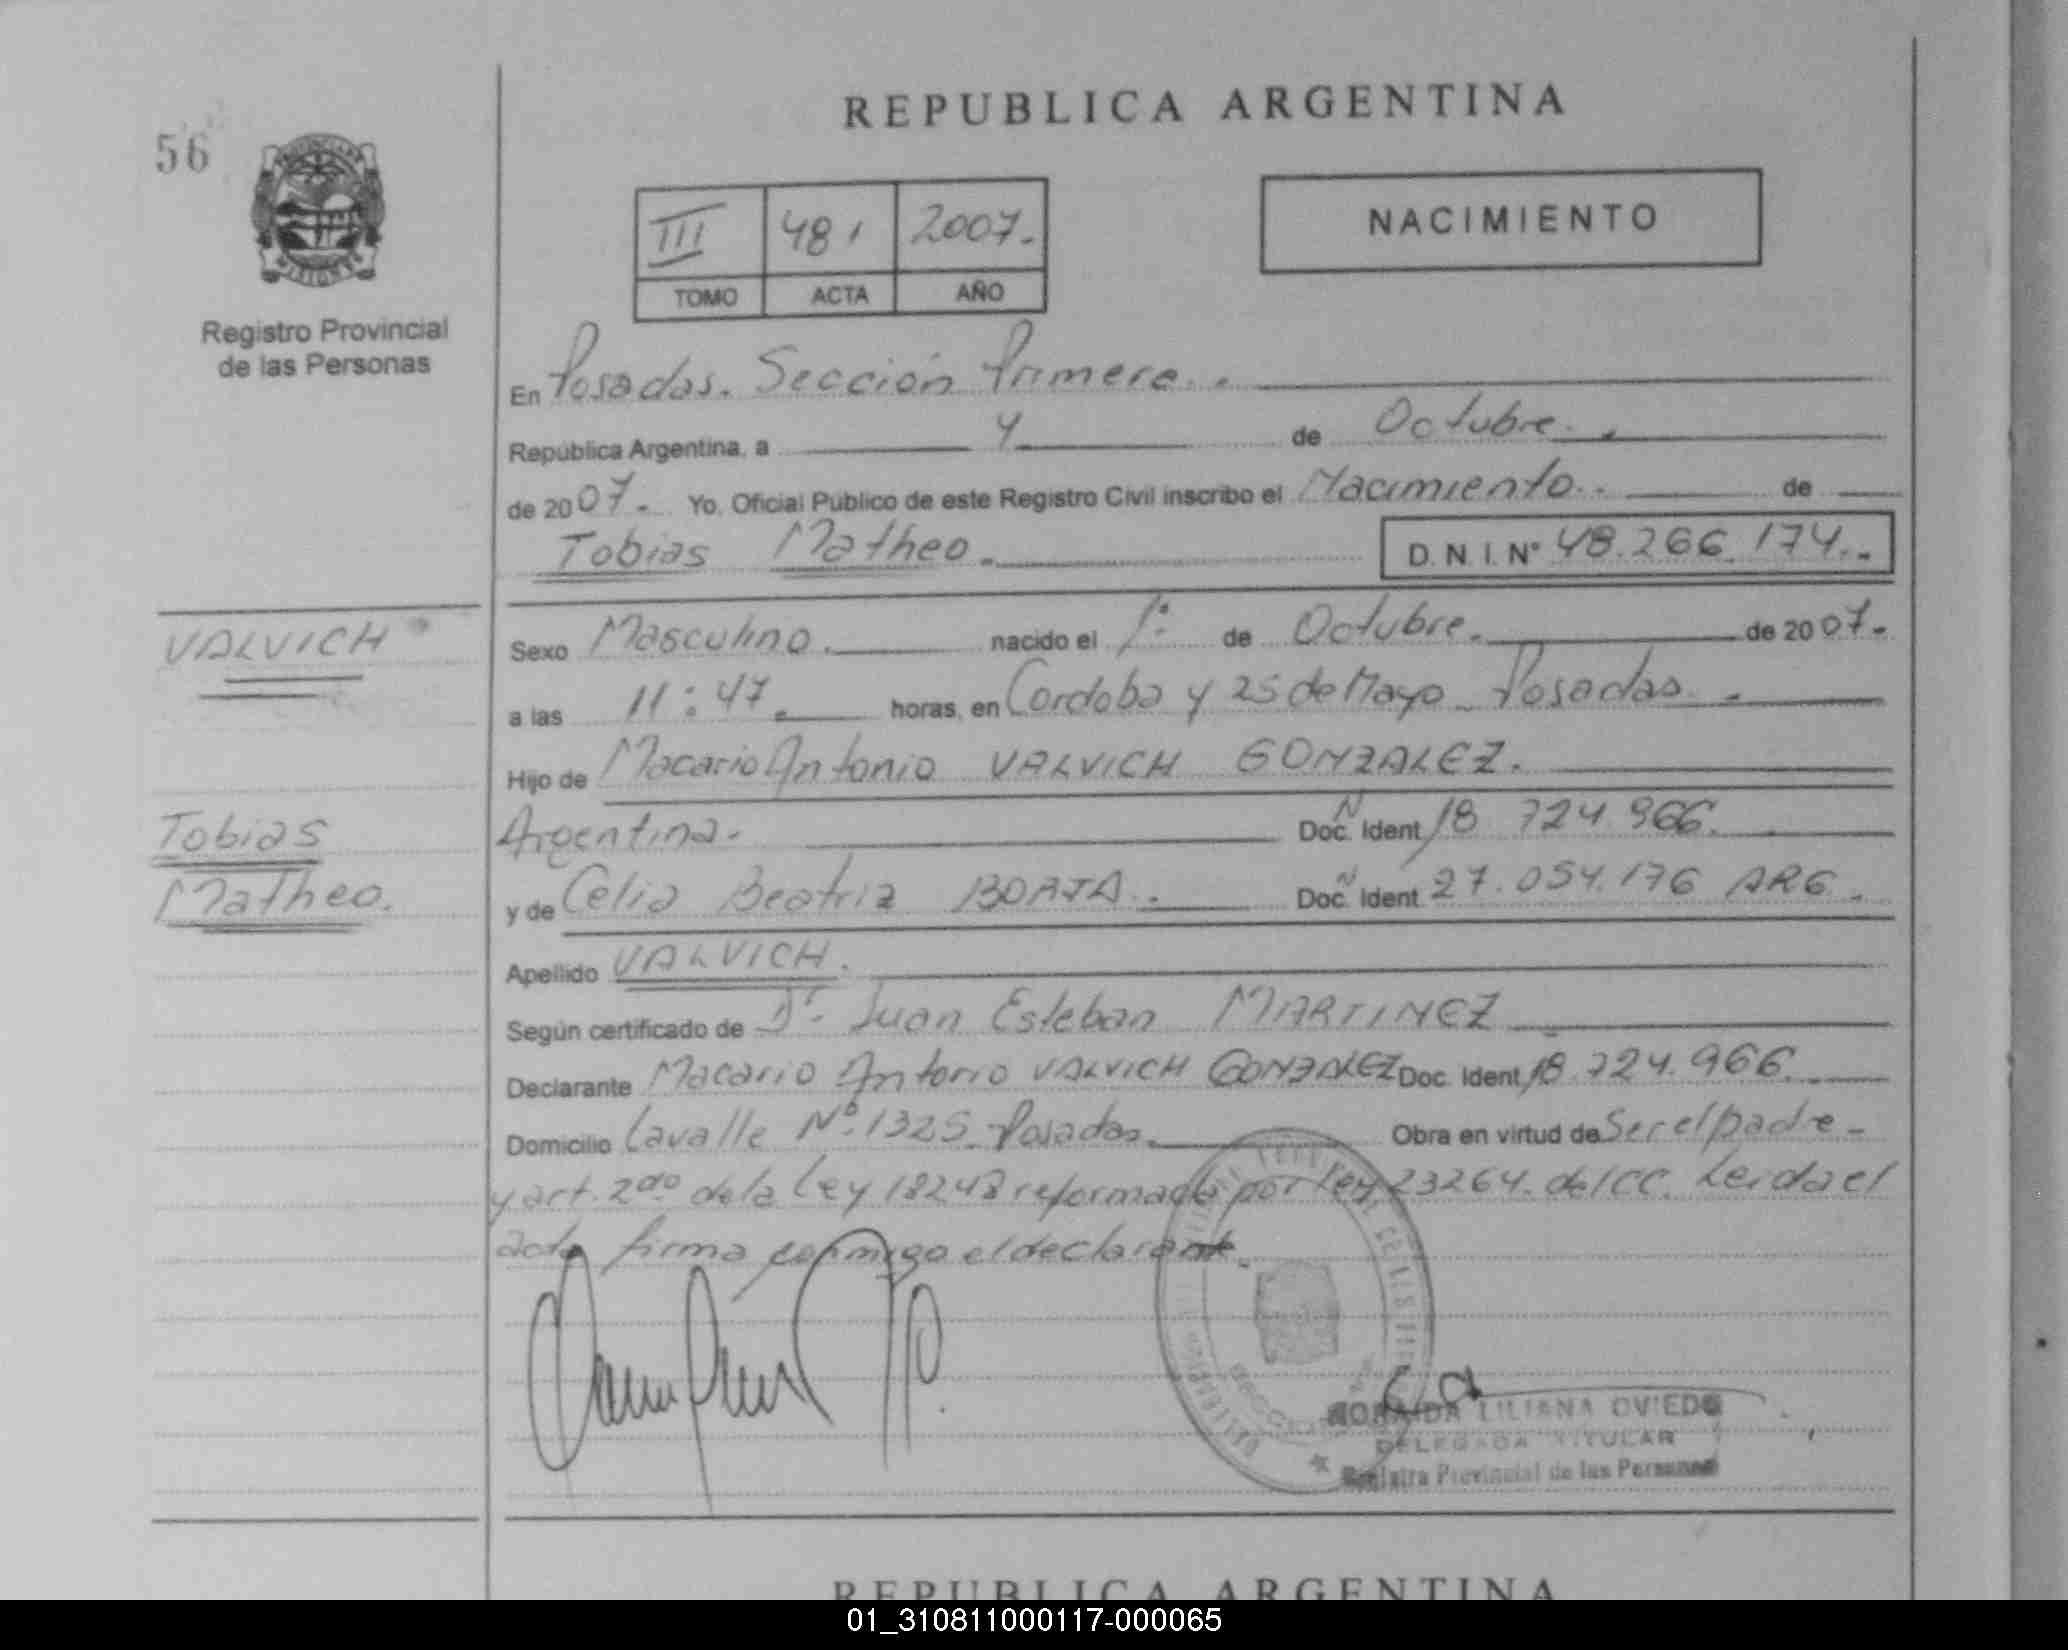 REPUBLICA ARGENTINA
56
III 481 2007.
TOMO ACTA AÑO
NACIMIENTO
Registro Provincial
de las Personas
En Posadas. Sección Primera.
República Argentina, a 4 de Octubre.
de 2007. Yo, Oficial Público de este Registro Civil inscribo el Nacimiento. de
Tobias Matheo. D.N.I.Nº 48.266.174.
VALVICH
Sexo Masculino. nacido el 1º de Octubre. de 2007.
a las 11:47. horas, en Cordoba y 25 de Mayo Posadas.
Hijo de Macario Antonio VALVICH GONZALEZ.
Tobias
Matheo.
Argentina. Doc. Ident N 18 724.966.
y de Celia Beatriz BORJA. Doc. Ident N 27.054.176 ARG.
Apellido VALVICH.
Según certificado de Dr. Juan Esteban MARTINEZ
Declarante Macario Antonio VALVICH GONZALEZ Doc. Ident 18.724.966.
Domicilio Lavalle Nº 1325 Posadas. Obra en virtud de Ser el padre
y art. 2do de la Ley 18248 reformada por Ley 23264. del CC. Leida el
acta firma conmigo el declarante.
LILIANA OVIEDO
DELEGADA TITULAR
Provincial de las Personas
REPUBLICA ARGENTINA
01_310811000117-000065